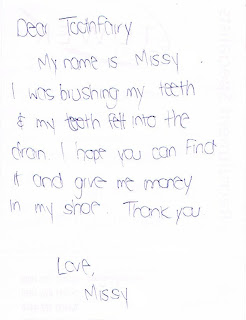 Dear Toothfairy
My name is Missy.
I was brushing my teeth
& my teeth fell into the
dran. I hope you can find
it and give me money
in my shoe. Thank you
Love,
Missy